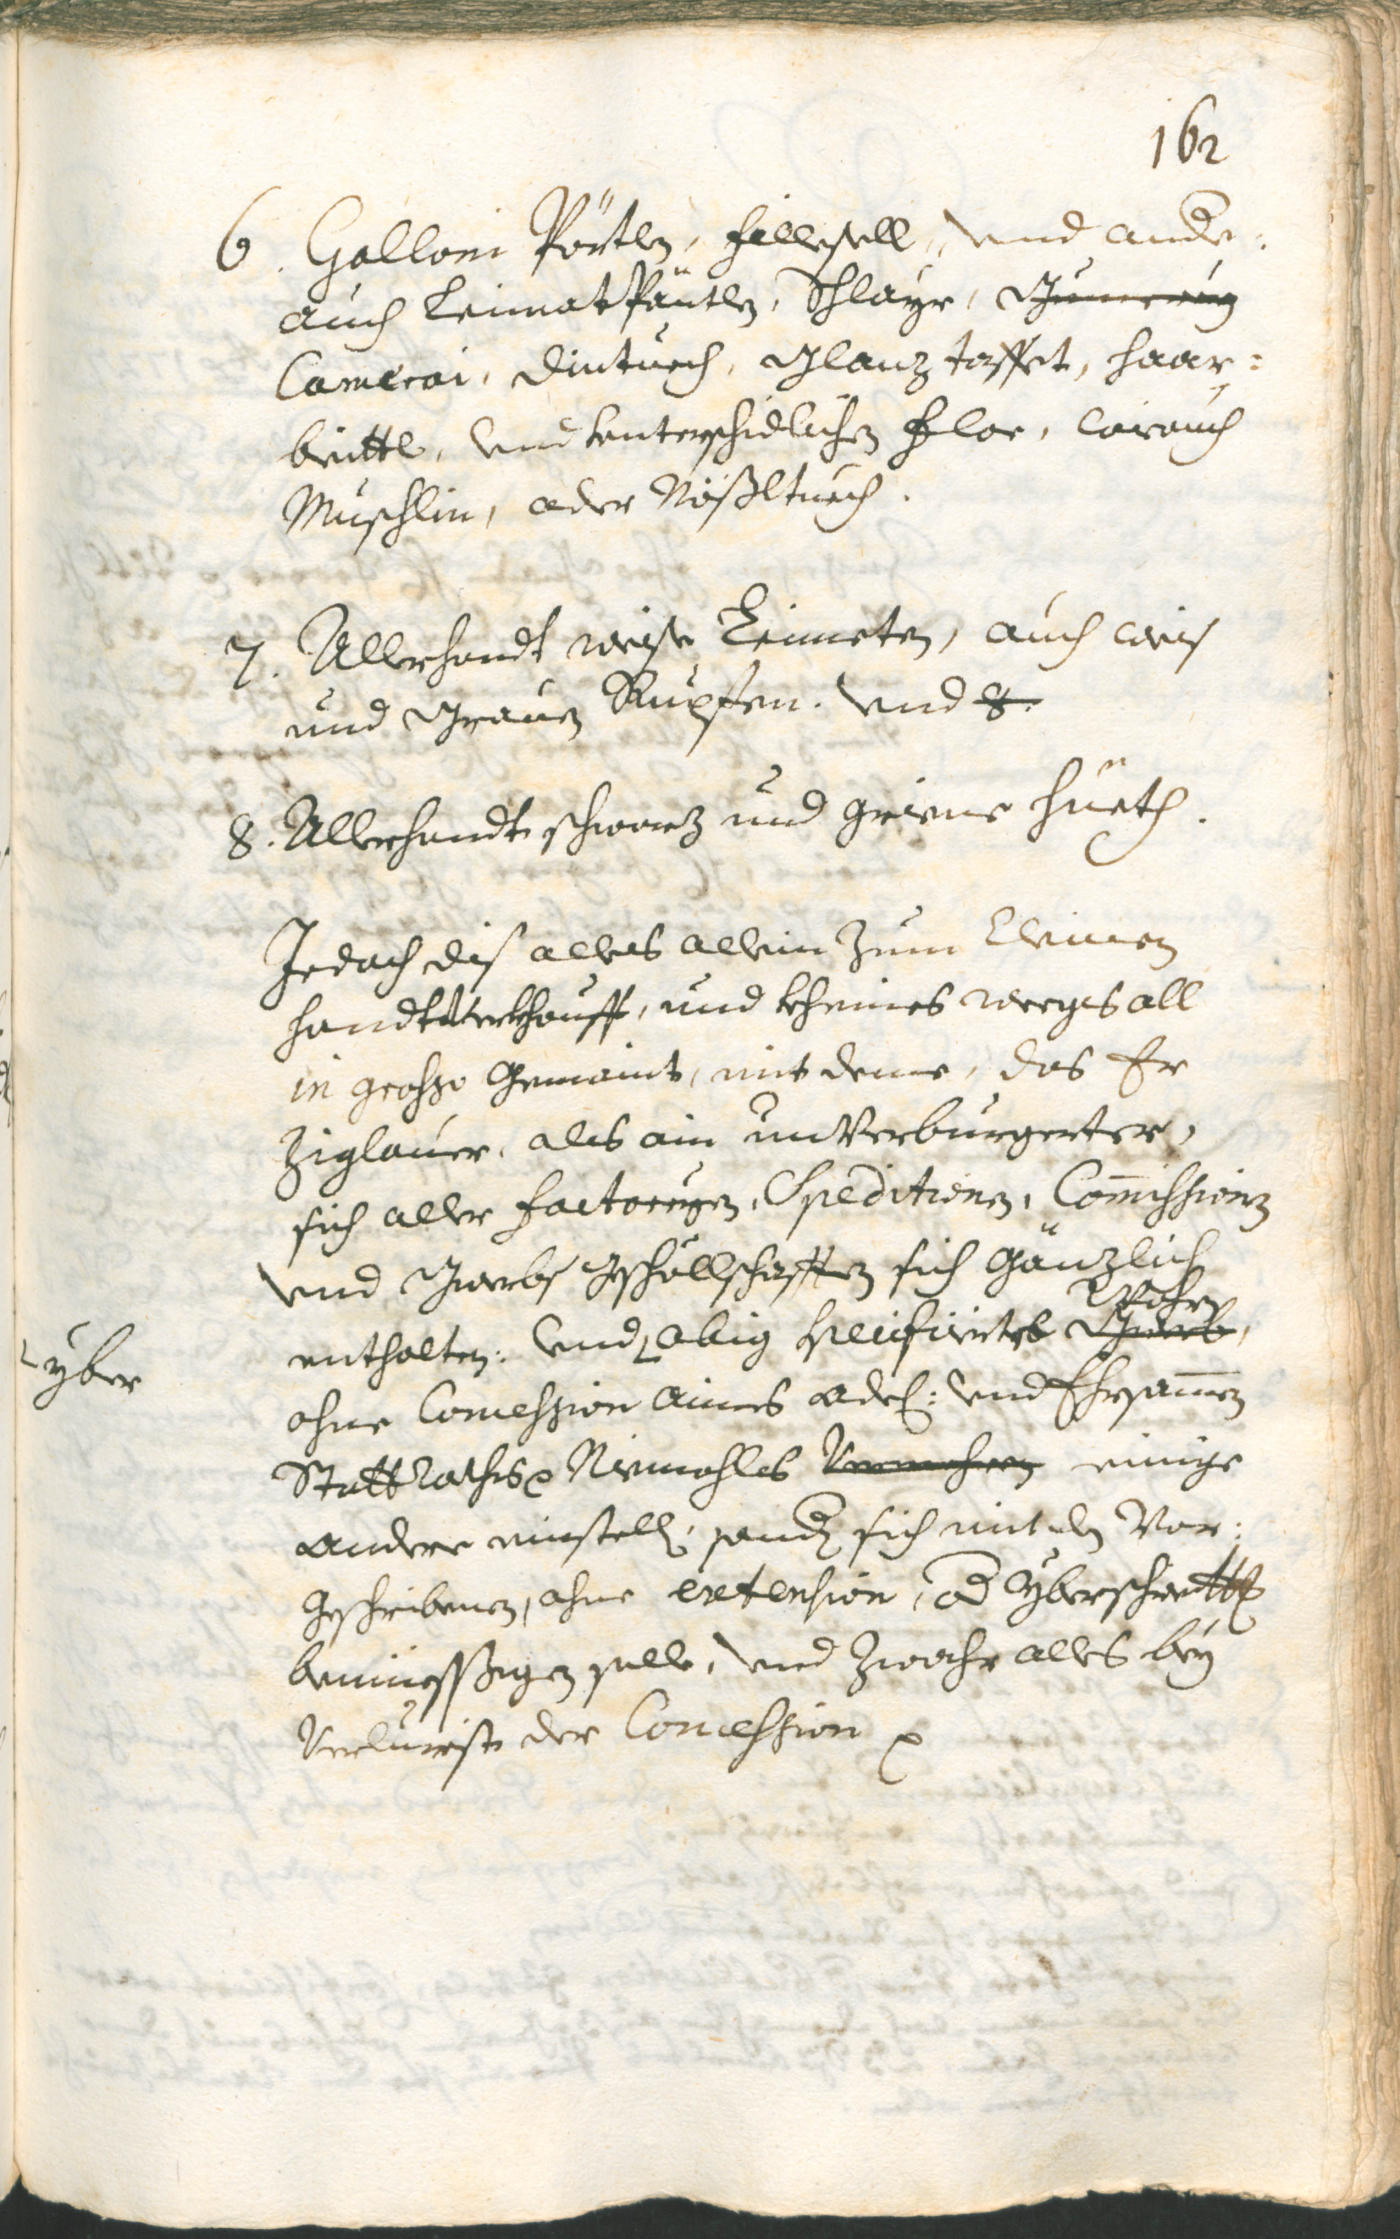 162
6. Galloni Pörtlen, fillesell, und ande:
auch Leinnat Päntlen, Schlayr,
Camerai, Dintuech, Glanz taffet, haar:
beüttl, und unterschidlichen flor, lauch
Muschlin, oder Nößltuech.
7. Allerhandt weiße Leinneten, auch weis
und Grauen Rupfen. Und 8.
8. Allerhandt schwarz und griene hüeth.
Jedoch dis alles allein Zum kleinen
handtverkhauff, und kheines weegs all
in grosso Gemaint, mit deme, das Er
Ziglauer, als ain unverburgerter,
sich aller factoreyen, Speditionen, Commissionen
und Gwerbs Gsöllschafften sich Gänzlich
enthalten: und obig specificirtes Gwerb,
Wahren
yber
ohne Concession aines Edl: und Ehrsammen
Statt Raths Niemahls Vermehren einige
andere einstellen, sondern sich mit den Vor:
geschribenen, ohne extension, oder yberschreittung
beniegen solle, und Zwahr alles bey
Verlurst der Concession